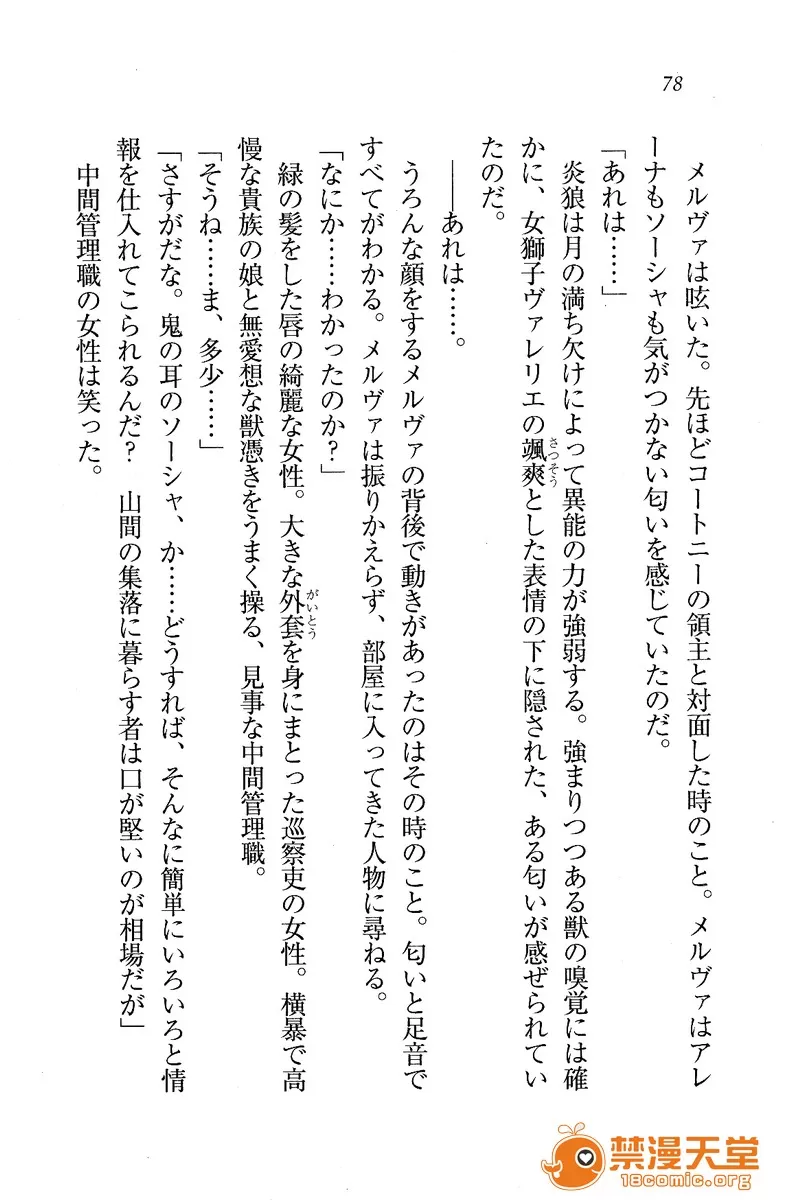 78
メルヴァは呟いた。先ほどコートニーの領主と対面した時のこと。メルヴァはアレ
ーナもソーシャも気がつかない匂いを感じていたのだ。
「あれは……」
炎狼は月の満ち欠けによって異能の力が強弱する。強まりつつある獣の嗅覚には確
かに、女獅子ヴァレリエの颯爽とした表情の下に隠された、ある匂いが感ぜられてい
さっそう
たのだ。
――あれは……。
うろんな顔をするメルヴァの背後で動きがあったのはその時のこと。匂いと足音で
すべてがわかる。メルヴァは振りかえらず、部屋に入ってきた人物に尋ねる。
「なにか……わかったのか？」
緑の髪をした唇の綺麗な女性。大きな外套を身にまとった巡察吏の女性。横暴で高
がいとう
慢な貴族の娘と無愛想な獣憑きをうまく操る、見事な中間管理職。
「そうね……ま、多少……」
「さすがだな。鬼の耳のソーシャ、か……どうすれば、そんなに簡単にいろいろと情
報を仕入れてこられるんだ？　山間の集落に暮らす者は口が堅いのが相場だが」
中間管理職の女性は笑った。
禁漫天堂
18comic.org